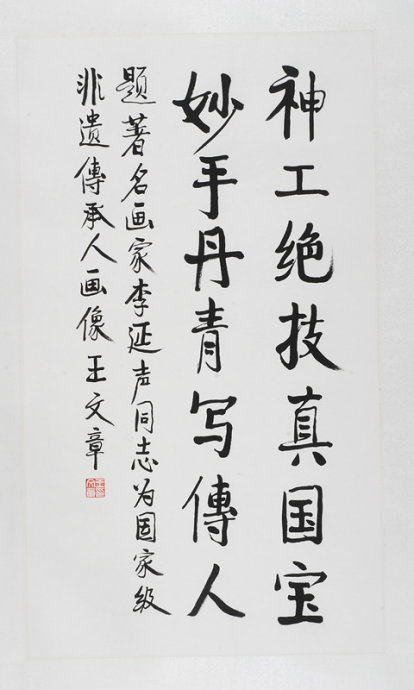 神工绝技真国宝
妙手丹青写傳人
题著名画家李延声同志为国家级
非遗傳承人画像王文章